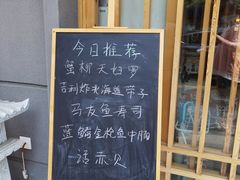 今日推荐
蟹柳天妇罗
吉利炸北海道带子
马友鱼寿司
蓝鳍金枪鱼中腩
活赤贝